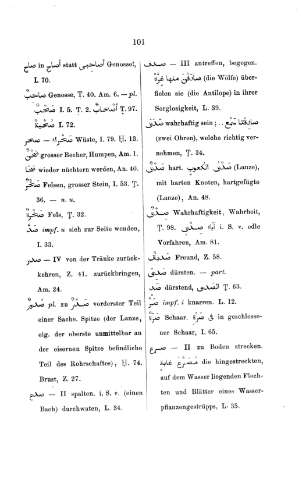 101
صاح in أصاح statt صاحبي Genosse!,
I. 70.
صاحب Genosse, T. 40. Am. 6. — pl.
صحب I. 5. T. 2. أصحاب T. 97.
I. 72.
صحر — صحراء Wüste, I. 79. U. 13.
صحن grosser Becher, Humpen, Am. 1.
صحا wieder nüchtern werden, An. 40.
صخر Felsen, grosser Stein, I. 53. T.
36. — n. u.
صخرة Fels, T. 32.
صد impf. u sich zur Seite wenden,
I. 33.
صدر — IV von der Tränke zurück-
kehren, Z. 41. zurückbringen,
Am. 24.
صدر pl. zu صدر vorderster Teil
einer Sache. Spitze (der Lanze,
eig. der oberste unmittelbar an
der eisernen Spitze befindliche
Teil des Rohrschaftes), U. 74.
Brust, Z. 27.
صدع — II spalten. i. S. v. (einen
Bach) durchwaten, L. 34.
صدف — III antreffen, begegnen.
صادفن منها غرة (die Wölfe) über-
fielen sie (die Antilope) in ihrer
Sorglosigkeit, L. 39.
صدق wahrhaftig sein;
(zwei Ohren), welche richtig ver-
nehmen, T. 34.
صدق hart. صدق الكعوب (Lanze),
mit harten Knoten, hartgefügte
(Lanze), An. 48.
صدق Wahrhaftigkeit, Wahrheit,
T. 98. i. S. v. edle
Vorfahren, Am. 81.
صديق Freund, Z. 58.
صدي dürsten. — part.
صد dürstend, الصدي T. 63.
صر impf. i knarren. L. 12.
صرة Schaar. في صرة in geschlosse-
ner Schaar, I. 65.
صرع — II zu Boden strecken.
مصرع غابة die hingestreckten,
auf dem Wasser liegenden Flech-
ten und Blätter eines Wasser-
pflanzengestrüpps, L. 35.